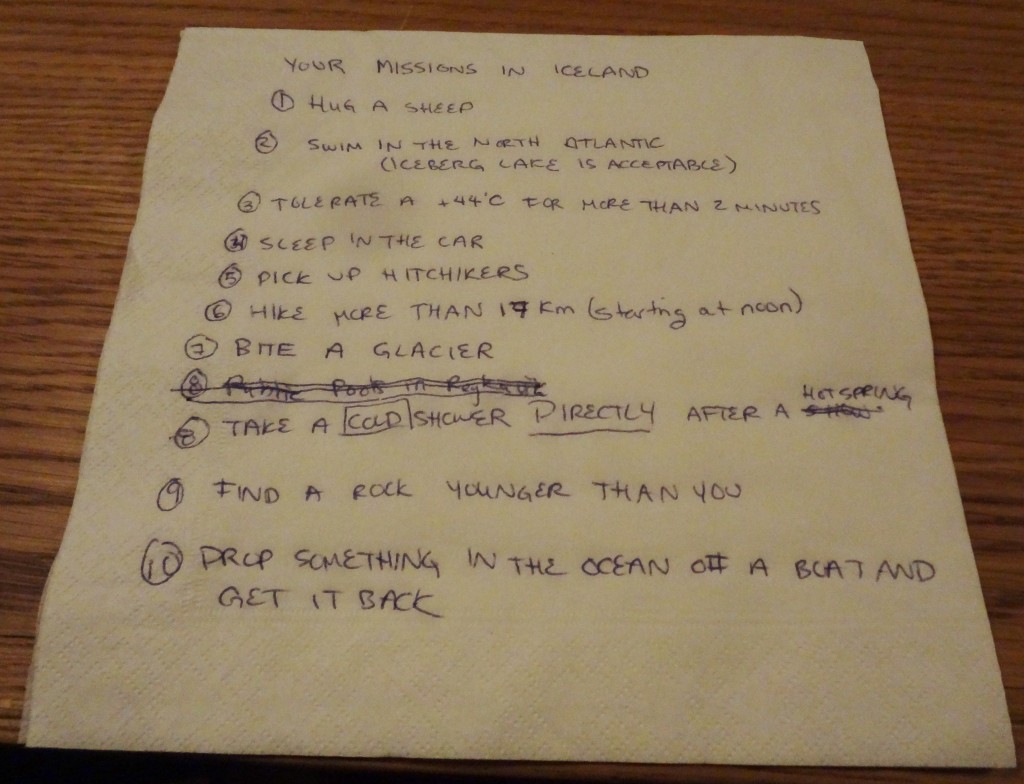 YOUR MISSIONS IN ICELAND
① HUG A SHEEP
② SWIM IN THE NORTH ATLANTIC
(ICEBERG LAKE IS ACCEPTABLE)
③ TOLERATE A +44°C FOR MORE THAN 2 MINUTES
④ SLEEP IN THE CAR
⑤ PICK UP HITCHIKERS
⑥ HIKE MORE THAN 17 Km (starting at noon)
⑦ BITE A GLACIER
⑧ Public Pool in
HOTSPRING
⑧ TAKE A COLD SHOWER DIRECTLY AFTER A
⑨ FIND A ROCK YOUNGER THAN YOU
⑩ DROP SOMETHING IN THE OCEAN OFF A BOAT AND
GET IT BACK